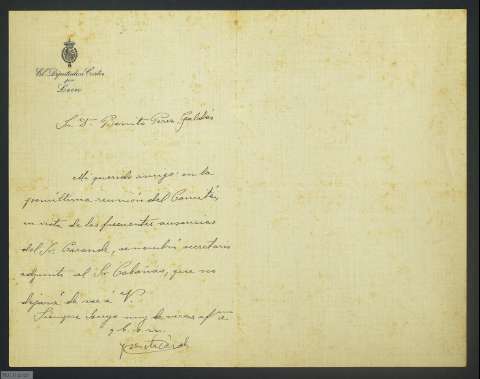 El Diputado á Cortes
por
León
Sr. Dn. Benito Perez Galdós
Mi querido amigo: en la
penúltima reunión del Comité,
en vista de las frecuentes ausencias
del Sr. Carande, se nombró secretario
adjunto al Sr. Cabañas, que no
dejará de ver á V.
Siempre suyo muy de veras af.
q. b. s. m.